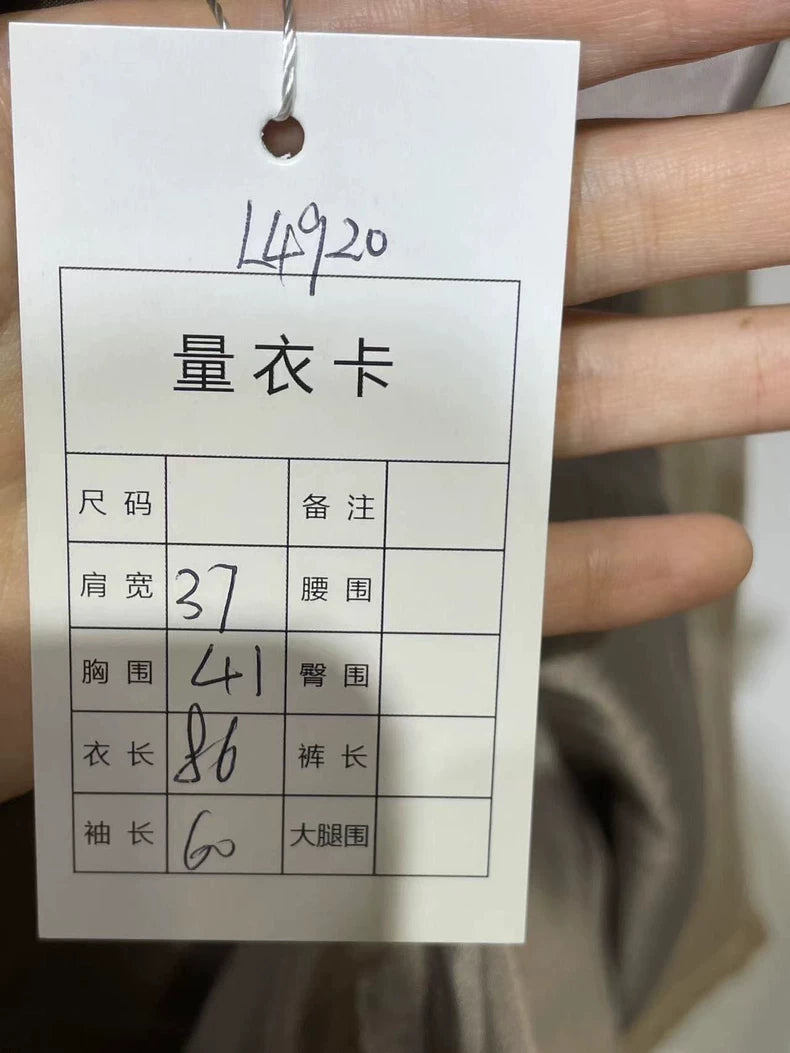 L4920
量衣卡
尺码 备注
肩宽 37 腰围
胸围 41 臀围
衣长 86 裤长
袖长 60 大腿围